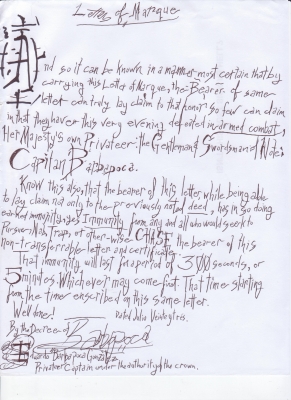 Letter of Marque
And so it can be known in a manner most certain that by
carrying this Letter of Marque, the Bearer of same
letter can truly lay claim to that honor so few can claim
in that they have this very evening defeated in armed combat,
Her Majesty's own Privateer: the Gentleman & Swordsman of
Capitan Barbaroca.
Know this also, that the bearer of this letter, while being able
to lay claim not only to the previously noted deed, has in so doing
earned immunity, yes Immunity form any and all who would seek to
Pursue with Traps or other-wise CHASE the bearer of this
non-transferrable letter and certificate.
That immunity will last for a period of 300 seconds, or
5 minutes. Whichever may come first. That time starting
form the time enscribed on this same letter.
Well done!
By the Decree of
Barbaroca
Privateer Captain under the authority of the crown.